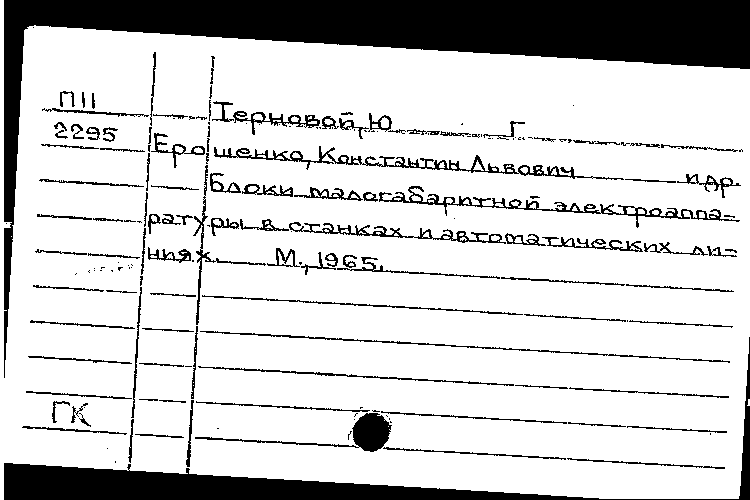 П11 Терновой, Ю Г
2295 Ерошенко, Константин Львович и др.
Блоки малогабаритной электроаппа=
ратуры в станках и автоматических ли=
ниях. М., 1965.
ГК